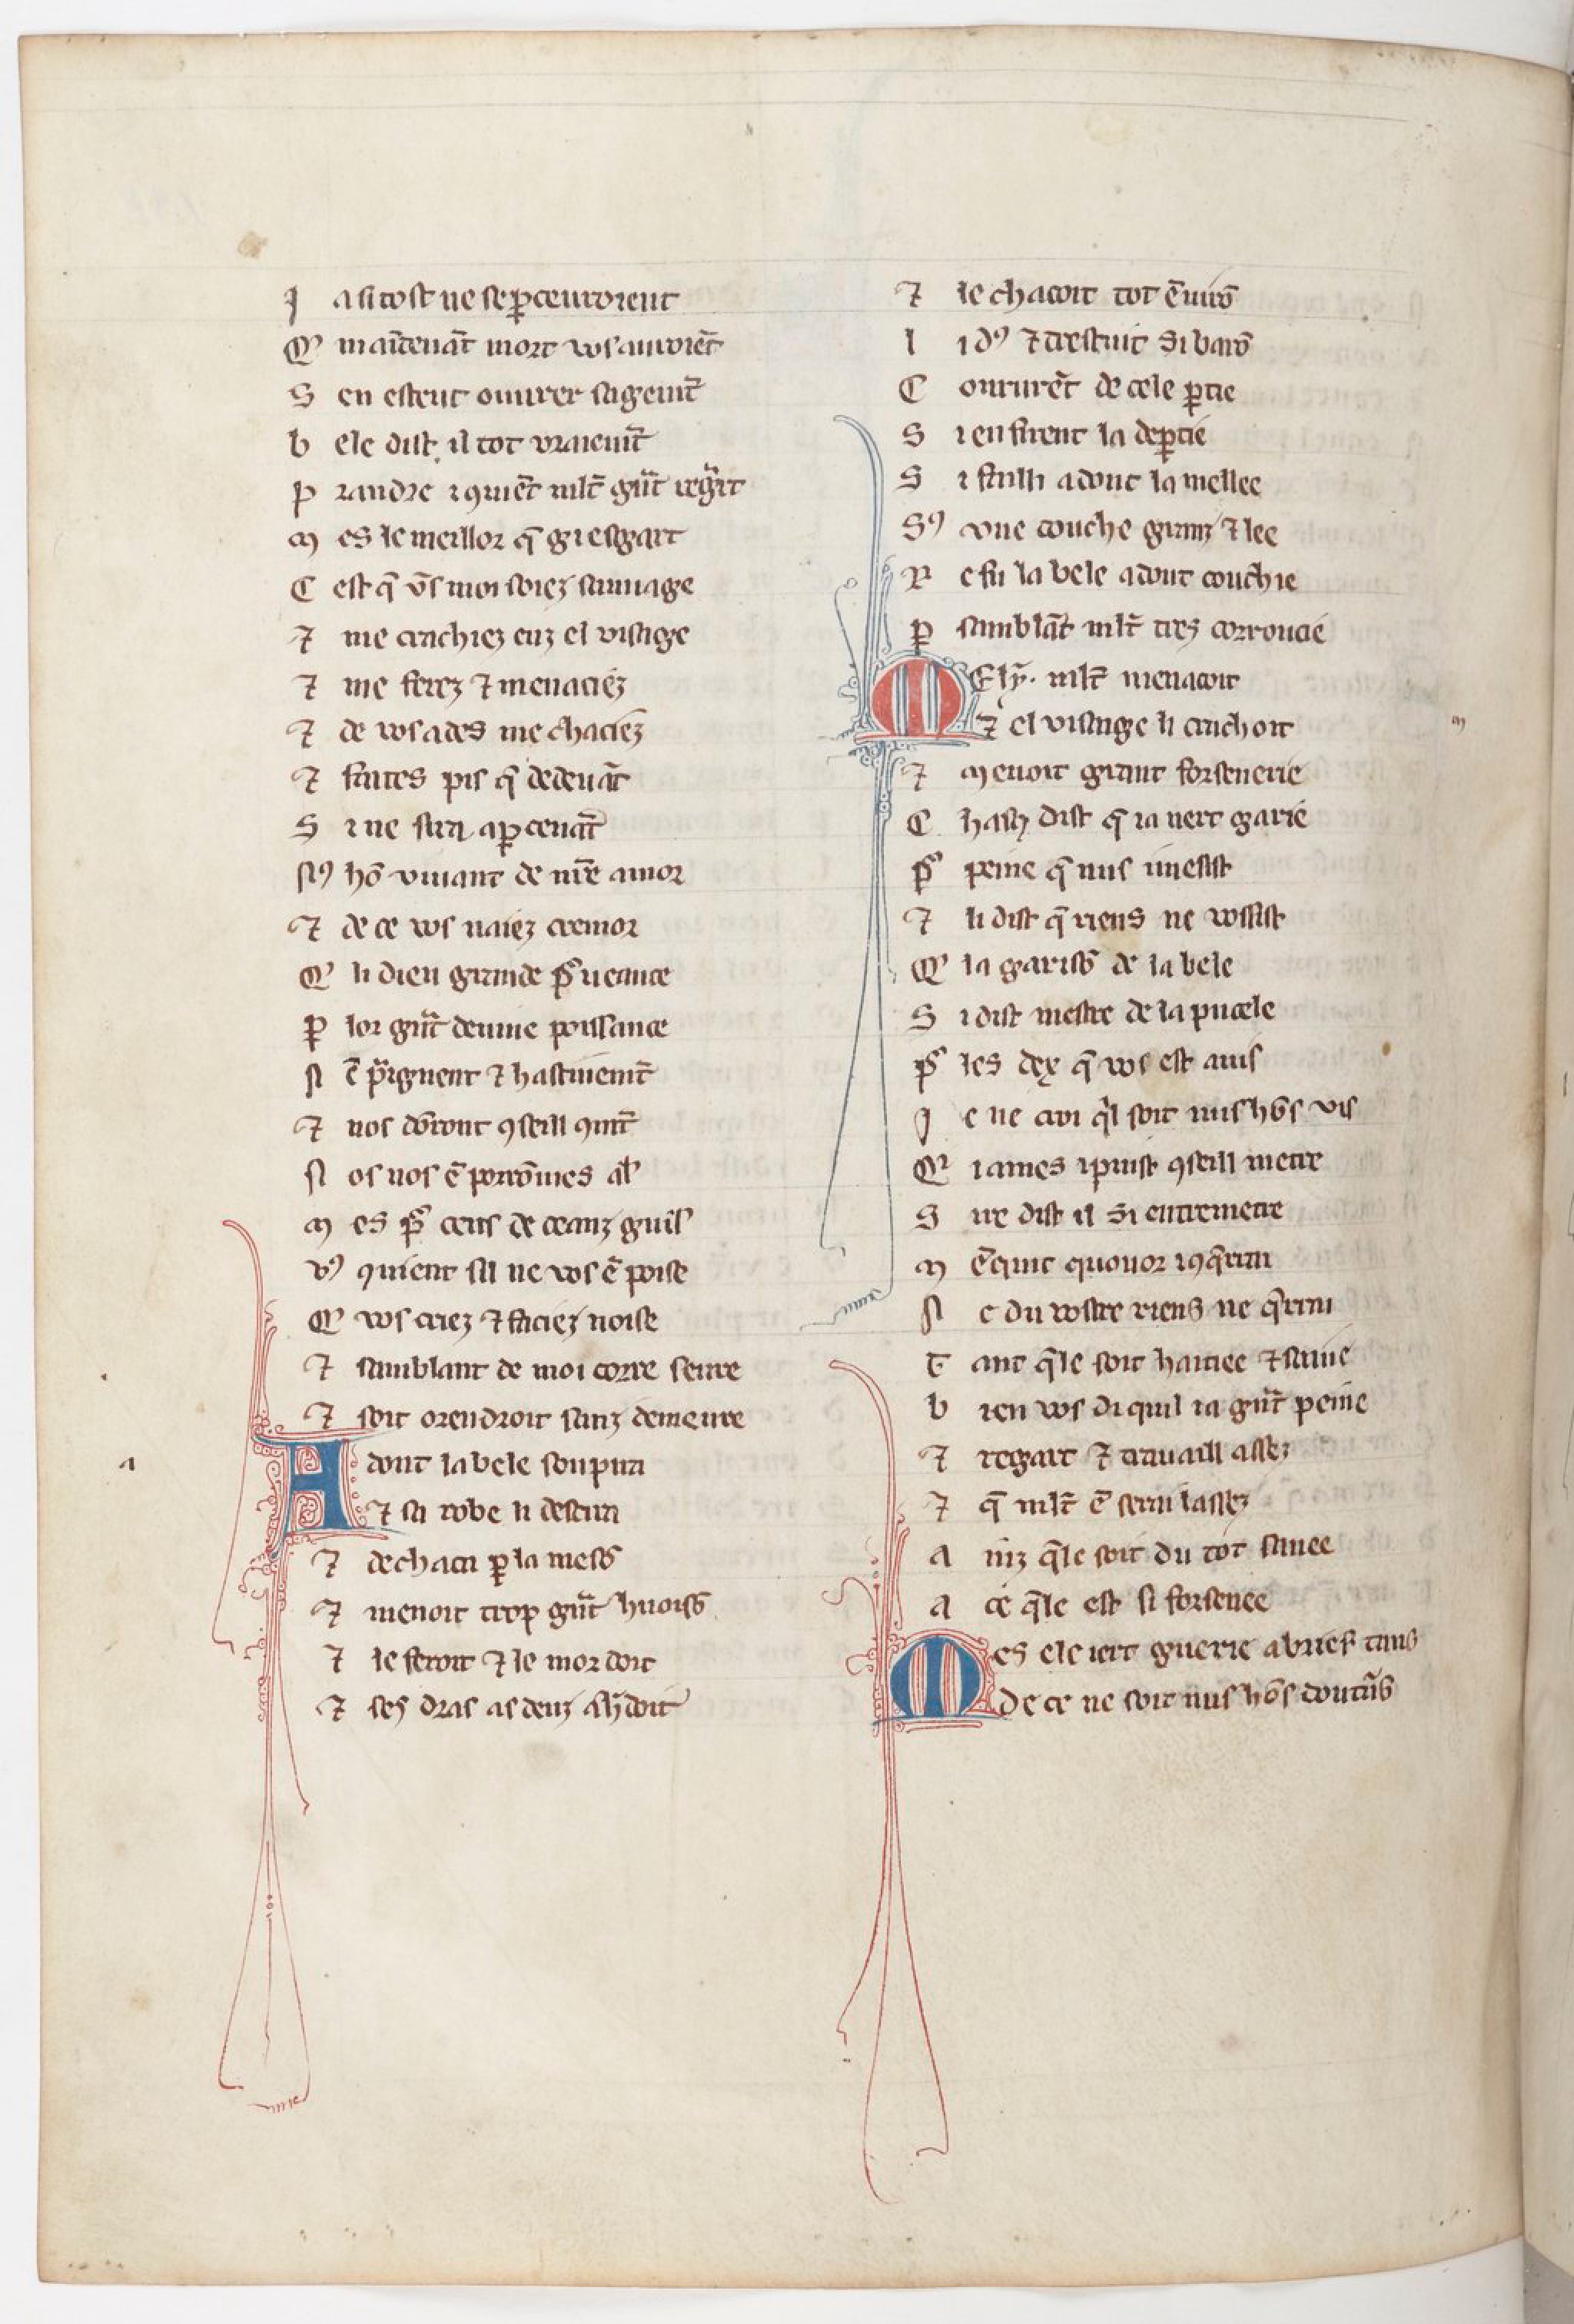 J a si tost ne se ꝑceuroient
Q' maītenāt mort vos auroiēt
S en esteut ouurer sagemt̄
b ele dist il tot vraiemt̄
P randre i ꝯuiēt mlt̄ gͣnt regͣrt
M es le meillor q̄ gi esgart
C est q̄ v̄s moi soiez sauuage
⁊ me crachiez enz el visage
⁊ me ferez ⁊ menaciez
⁊ de vos ades me chaciez
⁊ faites pis q̄ dedeuāt
S i ne sera aꝑceuāt
Nꝰ hō viuant de nr̄e amor
⁊ de ce vos naiez cremor
Q' li dieu grande ꝓueance
ꝑ lor gͣnt deuine poissance
N ē preignent ⁊ hastiuemt̄
⁊ nos dōront ꝯseill ꝯmt̄
N os nos ē porrōmes al'
M es pͦ ceus de ceanz guil'
vꝰ ꝯuient sil ne vos ē poise
Q' vos criez ⁊ faciez noise
⁊ samblant de moi corre seure
⁊ soit orendroit sanz demeure
A dont la bele soupira
⁊ sa robe li descira
⁊ dechaca ꝑ la mesō
⁊ menoit trop gͣnt huoisō
⁊ le feroit ⁊ le mordoit
⁊ ses dras as denz
a
⁊ le chacoit tot ēuirō
l i dꝰ ⁊ trestuit si barō
C oururēt de cele ꝑtie
S i en firent la deꝑtie
S i failli adont la mellee
Sꝰ vne couche granz ⁊ lee
R e fu la bele adont couchie
ꝑ samblāt mlt̄ tres corroucie
M Ely. mlt̄ menacoit
⁊ el visage li crachoit
⁊ Menoit grant forsenerie
C hasꝯ dist q̄ ia nert garie
pͦ peine q̄ nus i mesist
⁊ li dist q̄ riens ne vosist
Q' la garisō de la bele
S i dist mestre de la pucele
pͦ les dex q̄ vos est auis
J e ne croi qͥl soit nus hōs vis
Q' iames i puist ꝯseill metre
S ire dist il si entremetre
M ēcuit quonor i ꝯq̄rrai
N e du vostre riens ne q̄rrai
T ant q̄le soit haitiee ⁊ saine
b ien vos di quil ia gͣnt peine
⁊ regart ⁊ trauaill assez
⁊ q̄ mlt̄ ē serai lassez
A inz q̄le soit du tot sanee
A ce q̄le est si forsenee
M es ele iert guerie a brief tans
De ce ne soit nus hōs doutās
m